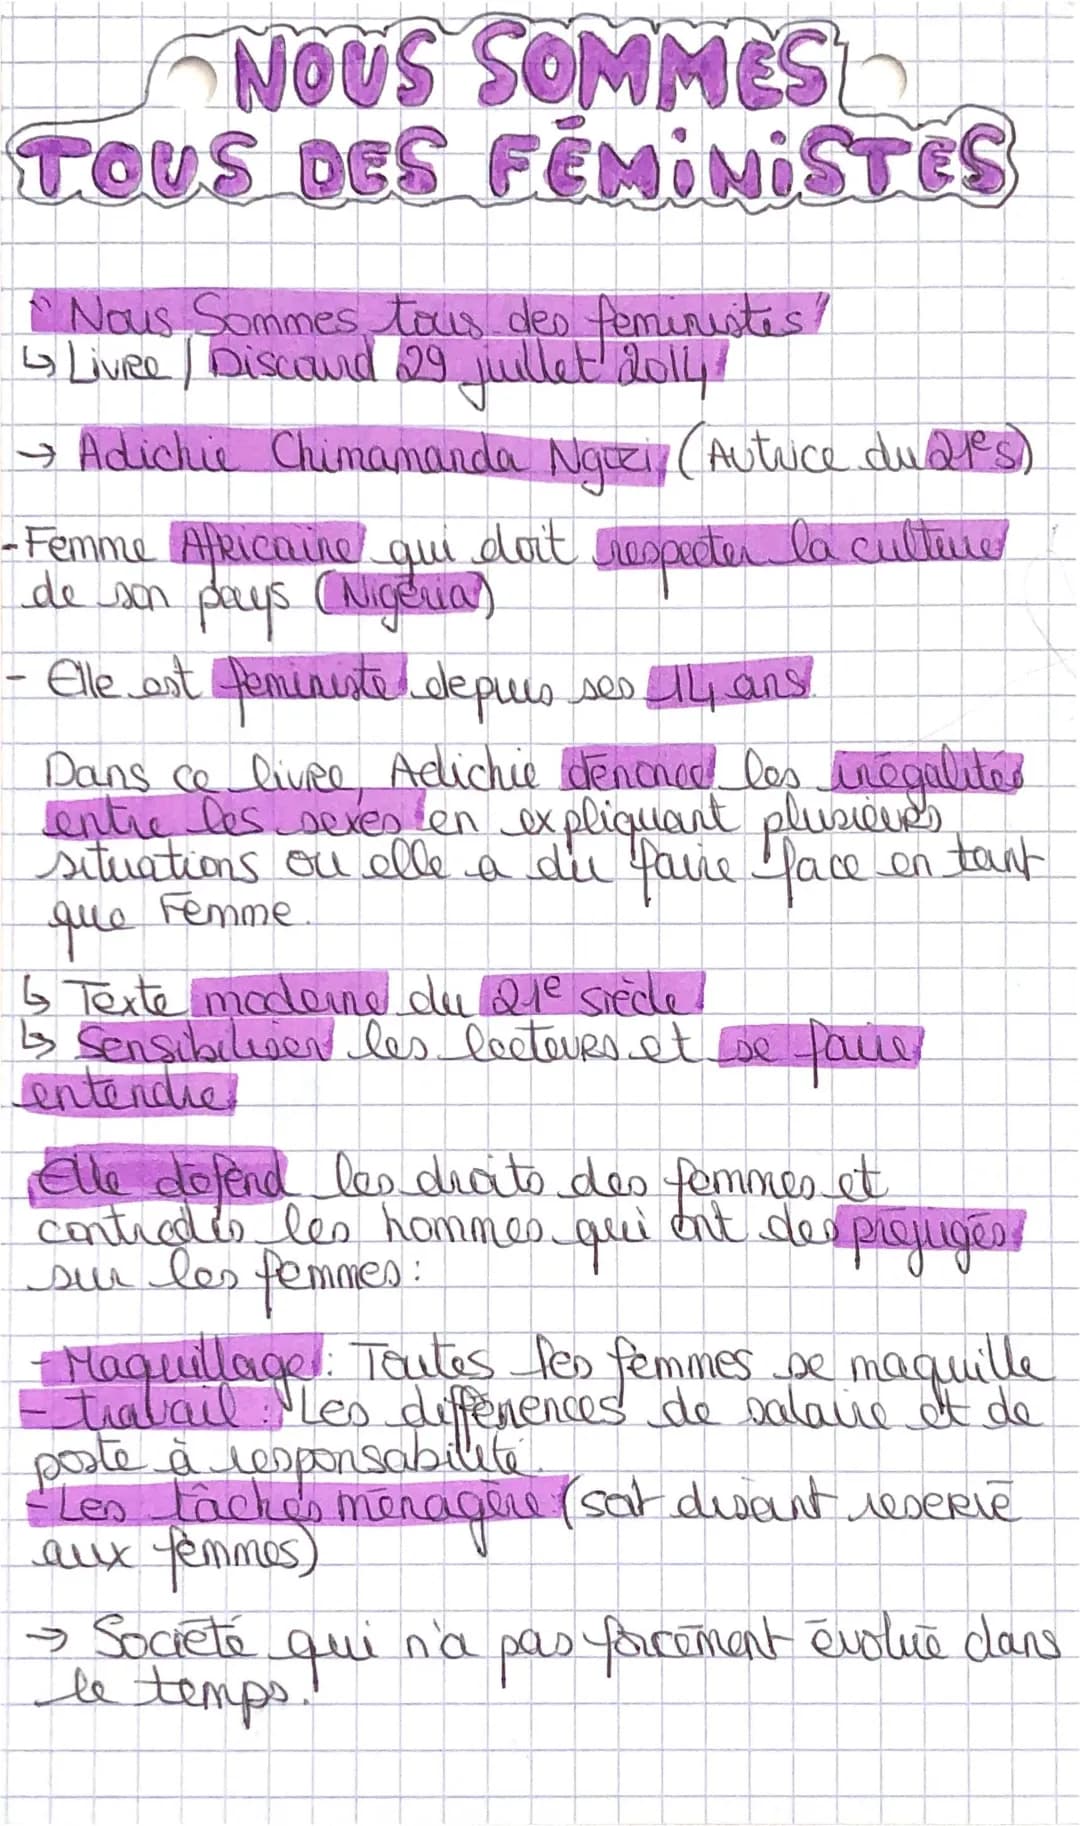 NOUS SOMMES
TOUS DES FÉMINISTES
"Nous Sommes tous des feministes"
↳ Livre / Discourd 29 juillet 2014
→ Adichie Chimamanda Ngozi (Autrice du 21e s)
- Femme Africaine qui doit respecter la culture
de son pays (Nigéria)
- Elle est feministe depuis ses 14 ans.
Dans ce livre, Adichie dénonce les inégalités
entre les sexes en expliquant plusieurs
situations ou elle a du faire face en tant
que Femme.
↳ Texte moderne du 21e siècle
↳ Sensibiliser les lecteurs et se faire
entendre
Elle défend les droits des femmes et
contredis les hommes qui ont des préjugés
sur les femmes :
- Maquillage : Toutes les femmes se maquille
- travail : Les différences de salaire et de
poste à responsabilité.
- Les tâches ménagère (soit disant reservé
aux femmes)
→ Société qui n'a pas forcément évolué dans
le temps.